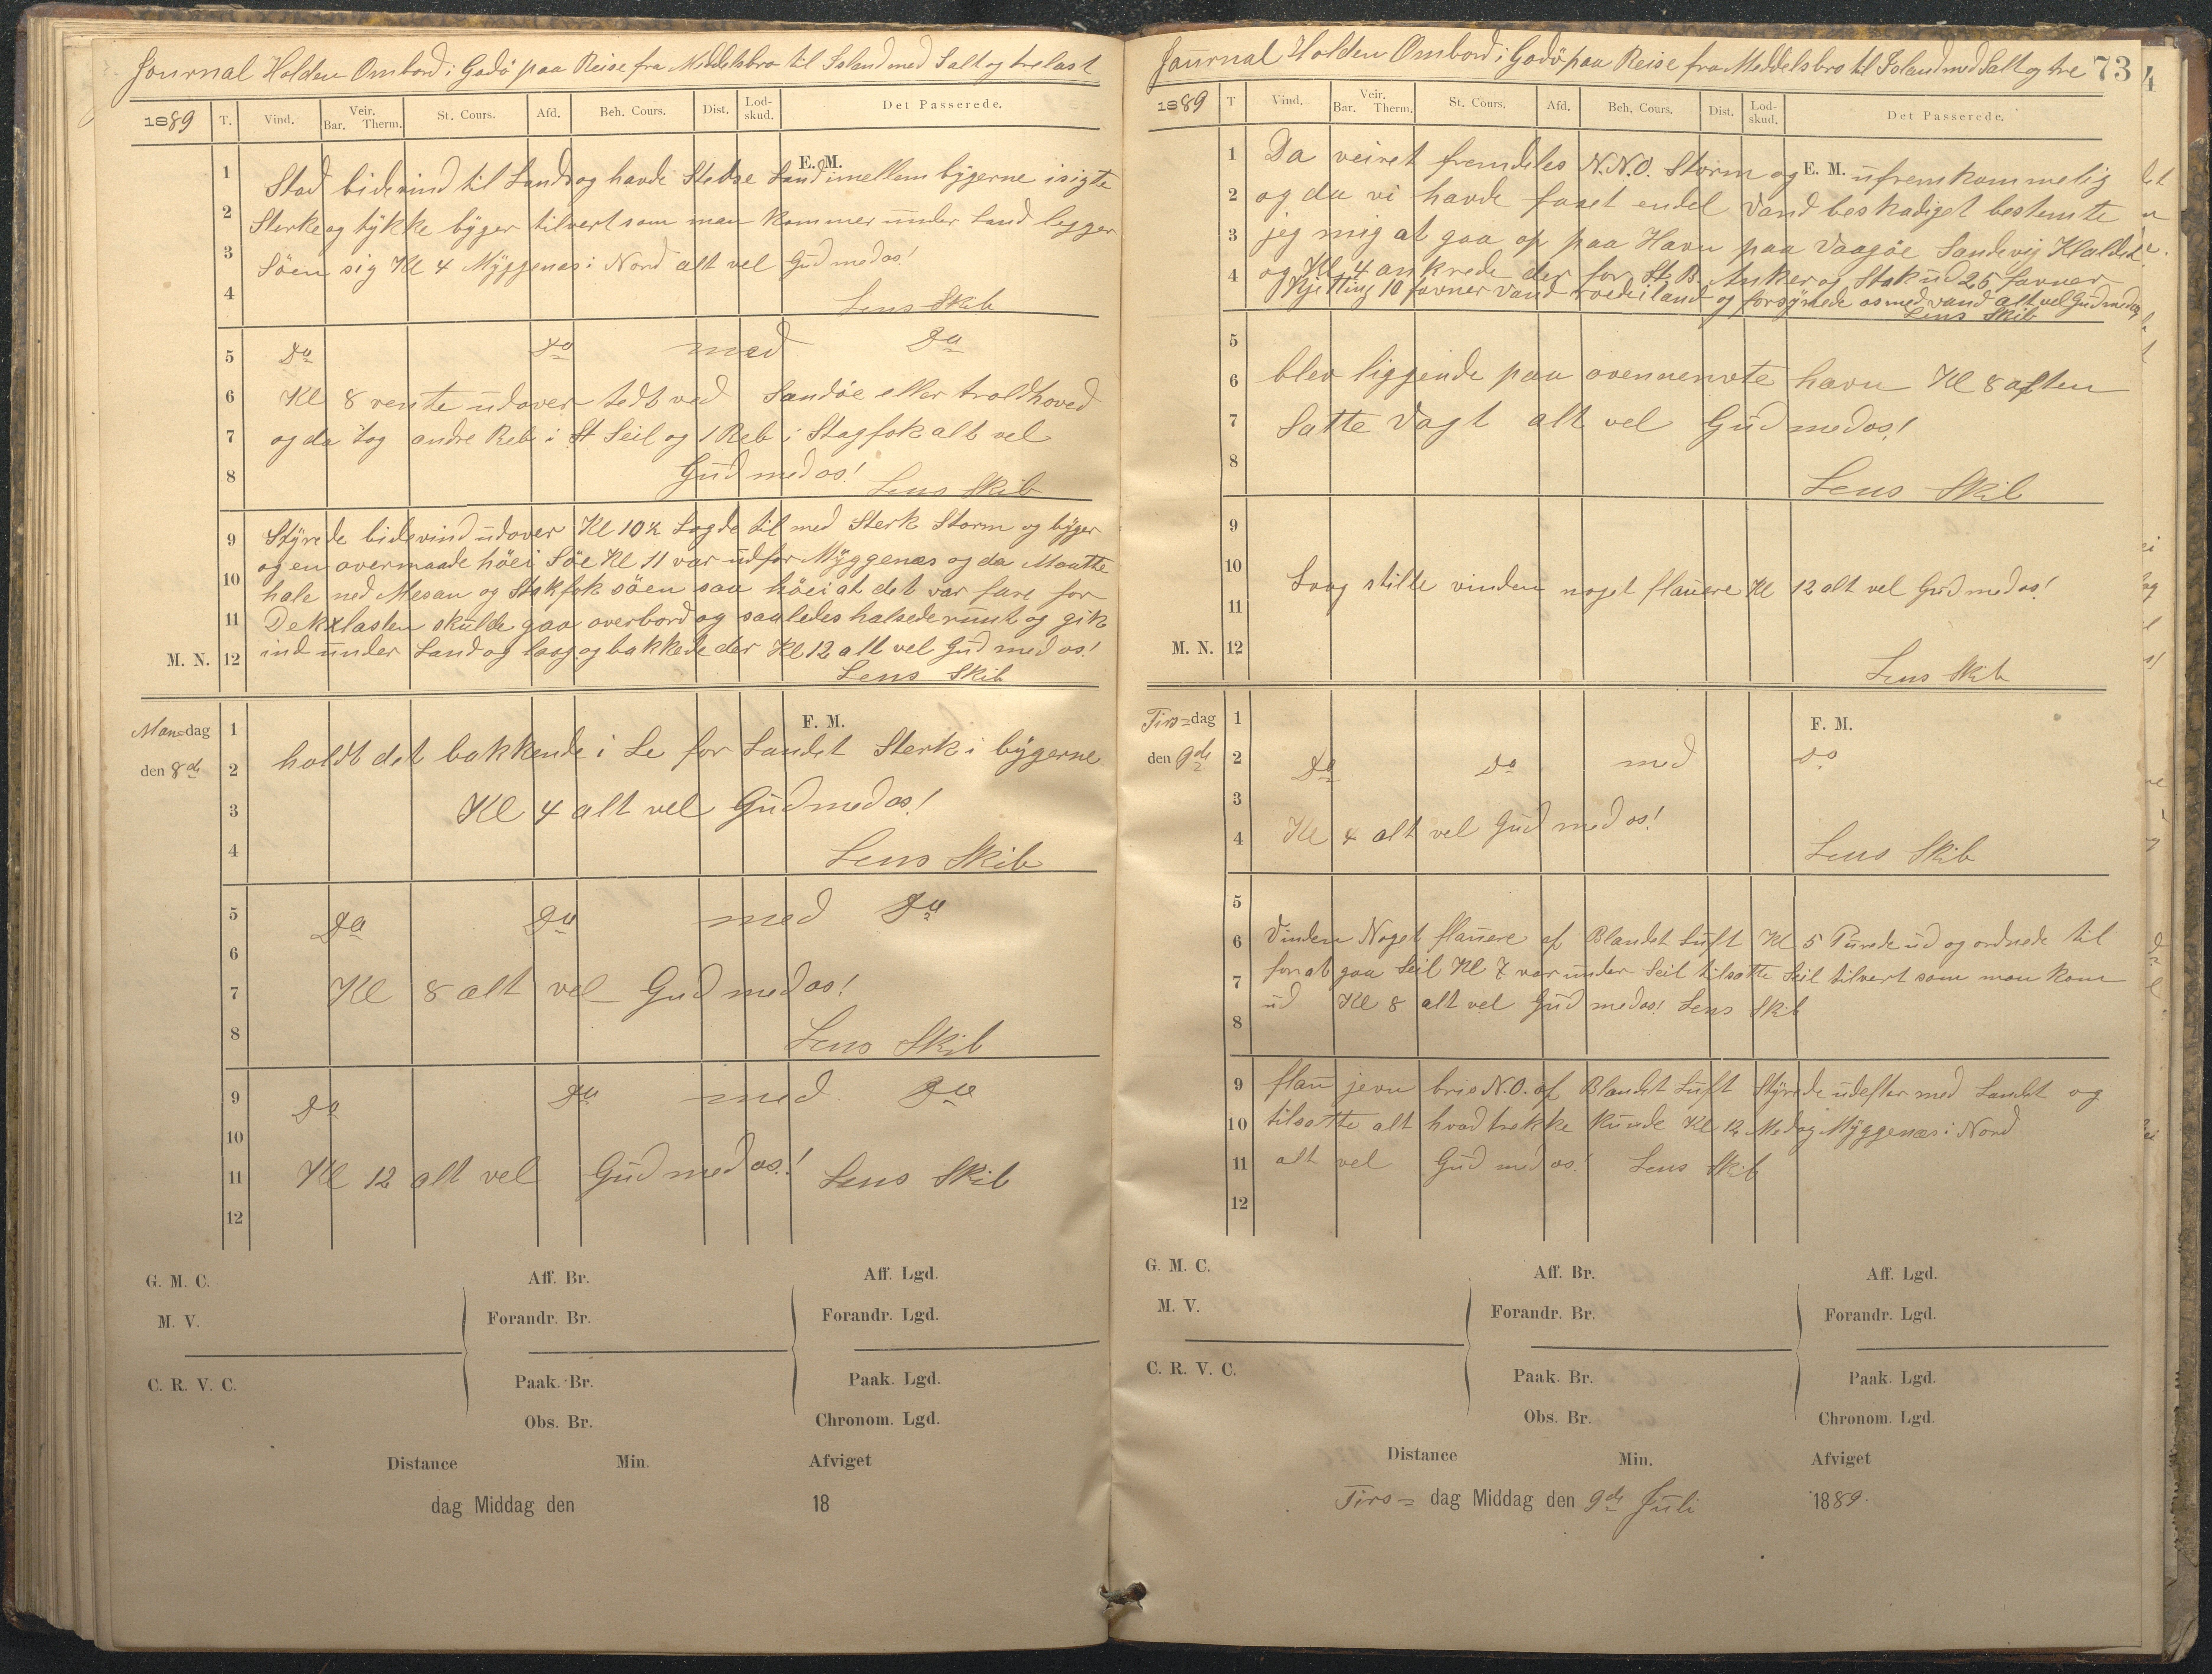 Journal Holden Ombord i Godö paa Reise fra Middelsbro til Island med Salt og trelast
1889 T. Vind. Veir. Bar. Therm. St. Cours. Afd. Beh. Cours. Dist. Lodskud. Det Passerede.
E. M.
1 2 3 4
Stod bidevind til Lands og havde Stedse Land imellem bygerne isigte
Sterke og tykke byger tilvert som man kommer under Land legger
Söen sig Kl 4 Myggenæs i Nord alt vel Gud med os!
Lens Skib
5 6 7 8
Do Do med Do
Kl 8 vente udover tedt ved Sandöe eller troldhoved
og da tog andre Reb i St Seil og 1 Reb i Stagfok alt vel
Gud med os! Lens Skib
9 10 11 12 M. N.
Styrede bidevind udover Kl 10½ Lagde til med Sterk Storm og byger
og en overmaade höei Söe Kl 11 var udfor Myggenæs og da Maatte
hale ned Mesan og Stakfok söen saa höei at det var fare for
Dekklasten skulde gaa overbord og saaledes halsede runt og gik
ind under Land og laag og bakkede der Kl 12 alt vel Gud med os!
Lens Skib
Man=dag
den 8de
F. M.
1 2 3 4
holdt det bakkende i Le for Landet Sterk i bygerne
Kl 4 alt vel Gud med os!
Lens Skib
5 6 7 8
Do Do med Do
Kl 8 alt vel Gud med os!
Lens Skib
9 10 11 12
Do Do med Do
Kl 12 alt vel Gud med os! Lens Skib
G. M. C. Aff. Br. Aff. Lgd.
M. V. Forandr. Br. Forandr. Lgd.
C. R. V. C. Paak. Br. Paak. Lgd.
Obs. Br. Chronom. Lgd.
Distance Min. Afviget
dag Middag den 18
Journal Holden Ombord i Godö paa Reise fra Middelsbro til Island med Salt og tre 73
1889 T Vind. Veir. Bar. Therm. St. Cours. Afd. Beh. Cours. Dist. Lodskud. Det Passerede.
E. M.
1 2 3 4
Da veiret fremdeles N.N.O. Storm og ufremkommelig
og da vi havde faaet endel Vand beskadiget bestemte
jeg mig at gaa op paa Havn paa Vaagöe Sandevig
og Kl 4 ankrede der for St. B. Anker og Stak ud 25 favner
Kjetting 10 favner vand roede iland og forsynede os med vand alt vel Gud med os
Lens Skib
5 6 7 8
blev liggende paa ovennevnte havn Kl 8 aften
Satte Vagt alt vel Gud med os!
Lens Skib
9 10 11 12 M. N.
Laag stille vinden noget flauere Kl 12 alt vel Gud med os!
Lens Skib
Tirs=dag
den 9de
F. M.
1 2 3 4
Do Do med Do
Kl 4 alt vel Gud med os!
Lens Skib
5 6 7 8
Vinden Noget flauere af Blandet Luft Kl 5 Purrede ud og ordnede til
for at gaa Seil Kl 7 var under Seil tilsatte Seil tilvert som man kom
ud Kl 8 alt vel Gud med os! Lens Skib
9 10 11 12
flau jevn bris N.O. af Blandet Luft Styrede udefter med Landet og
tilsatte alt hvad trekke kunde Kl 12 Medag Myggenæs i Nord
alt vel Gud med os! Lens Skib
G. M. C. Aff. Br. Aff. Lgd.
M. V. Forandr. Br. Forandr. Lgd.
C. R. V. C. Paak. Br. Paak. Lgd.
Obs. Br. Chronom. Lgd.
Distance Min. Afviget
Tirs= dag Middag den 9de Juli 1889.